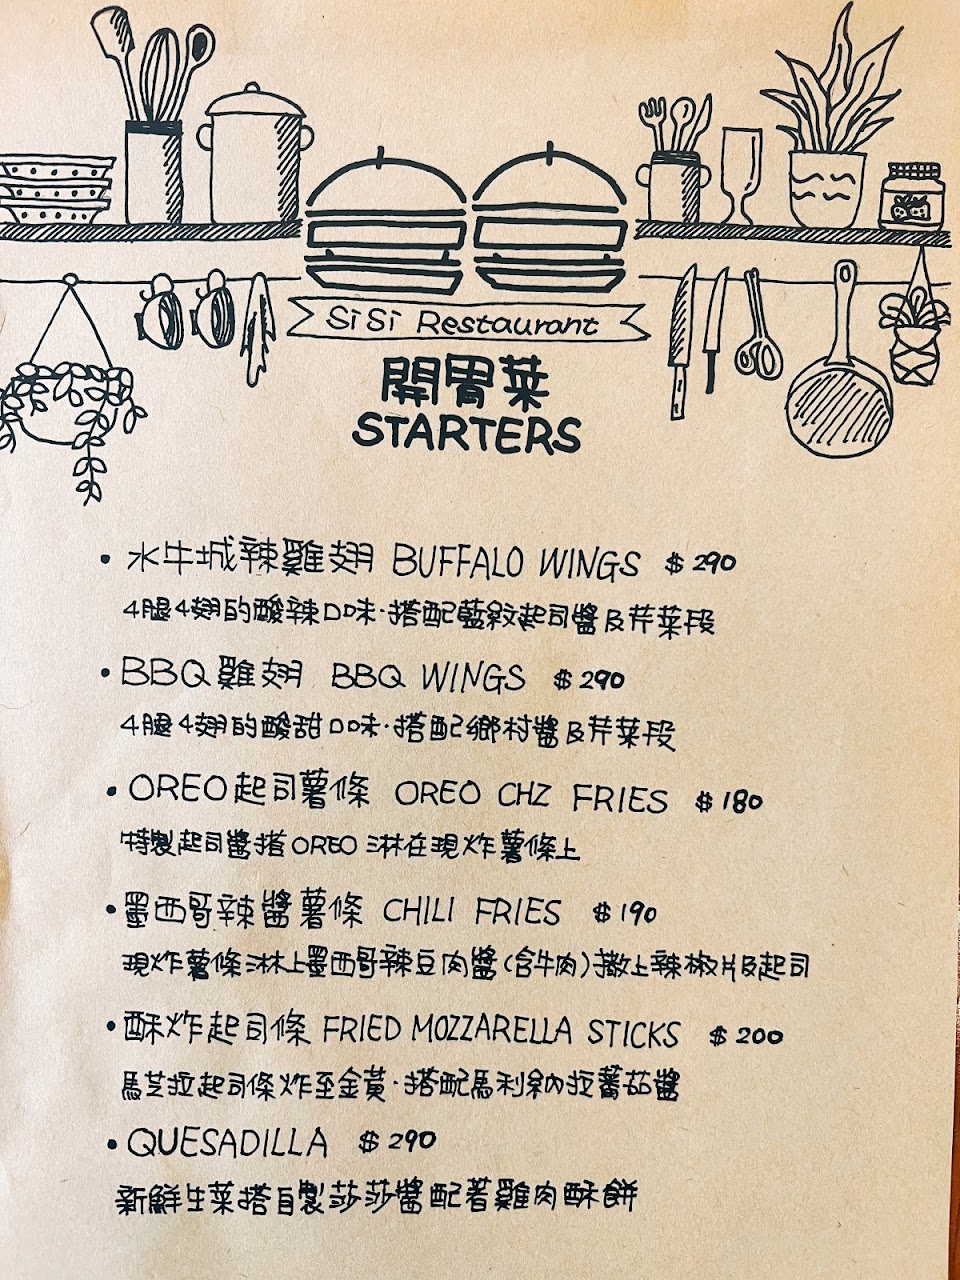 SiSi Restaurant
開胃菜
STARTERS
• 水牛城辣雞翅 BUFFALO WINGS $290
4腿4翅的酸辣口味·搭配藍紋起司醬及芹菜段
• BBQ雞翅 BBQ WINGS $290
4腿4翅的酸甜口味·搭配鄉村醬及芹菜段
• OREO起司薯條 OREO CHZ FRIES $180
特製起司醬搭OREO淋在現炸薯條上
• 墨西哥辣醬薯條 CHILI FRIES $190
現炸薯條淋上墨西哥辣豆肉醬(含牛肉)撒上辣椒片及起司
• 酥炸起司條 FRIED MOZZARELLA STICKS $200
馬芝拉起司條炸至金黃·搭配馬利納拉蕃茄醬
• QUESADILLA $290
新鮮生菜搭自製莎莎醬配著雞肉酥餅